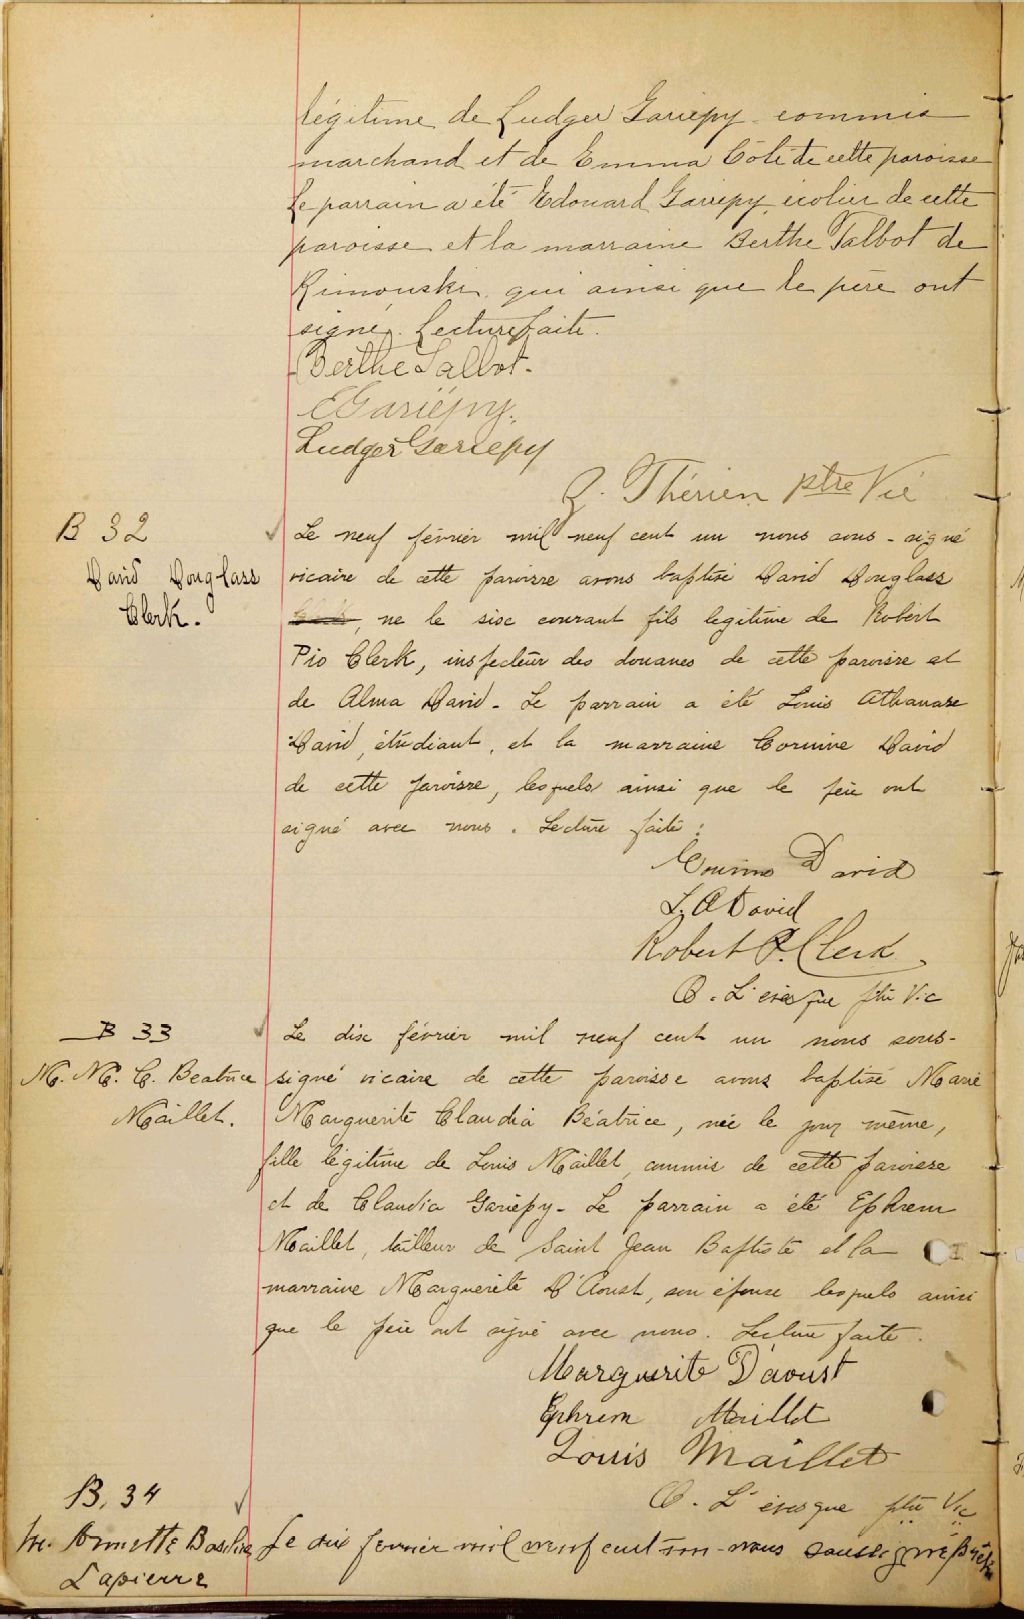 légitime de Ludger Gariépy commis
marchand et de Emma Côté de cette paroisse
Le parrain a été Edouard Gariepy, écolier de cette
paroisse et la marraine Berthe Talbot de
Rimouski qui ainsi que le père ont
signé. Lecture faite.
Berthe Talbot.
E Gariépy.
Ludger Gariepy
Thérien ptre Vic
B 32
David Douglass
Clerk.
Le neuf février mil neuf cent un nous sous-signé
vicaire de cette paroisse avons baptisé David Douglass
, né le six courant fils legitime de Robert
Pio Clerk, inspecteur des douanes de cette paroisse et
de Alma David - Le parrain a été Louis Athanase
David, étudiant, et la marraine Corinne David
de cette paroisse, lesquels ainsi que le père ont
signé avec nous. Lecture faite:
Corinne David
L. A David
Robert P. Clerk
O. L'évesque ptre Vic
B 33
M. M. C. Beatrice
Maillet.
Le dix février mil neuf cent un nous sous-
signé vicaire de cette paroisse avons baptisé Marie
Marguerite Claudia Béatrice, née le jour même,
fille légitime de Louis Maillet, commis de cette paroisse
et de Claudia Gariépy - Le parrain a été Ephrem
Maillet, tailleur de Saint Jean Baptiste et la
marraine Marguerite D'Aoust, son épouse lesquels ainsi
que le père ont signé avec nous. Lecture faite.
Marguerite D'aoust
Ephrem Maillet
Louis Maillet
O. L'évesque ptre Vic
B. 34
Lapierre
Le dix fevrier mil neuf cent un nous soussigné prêtre